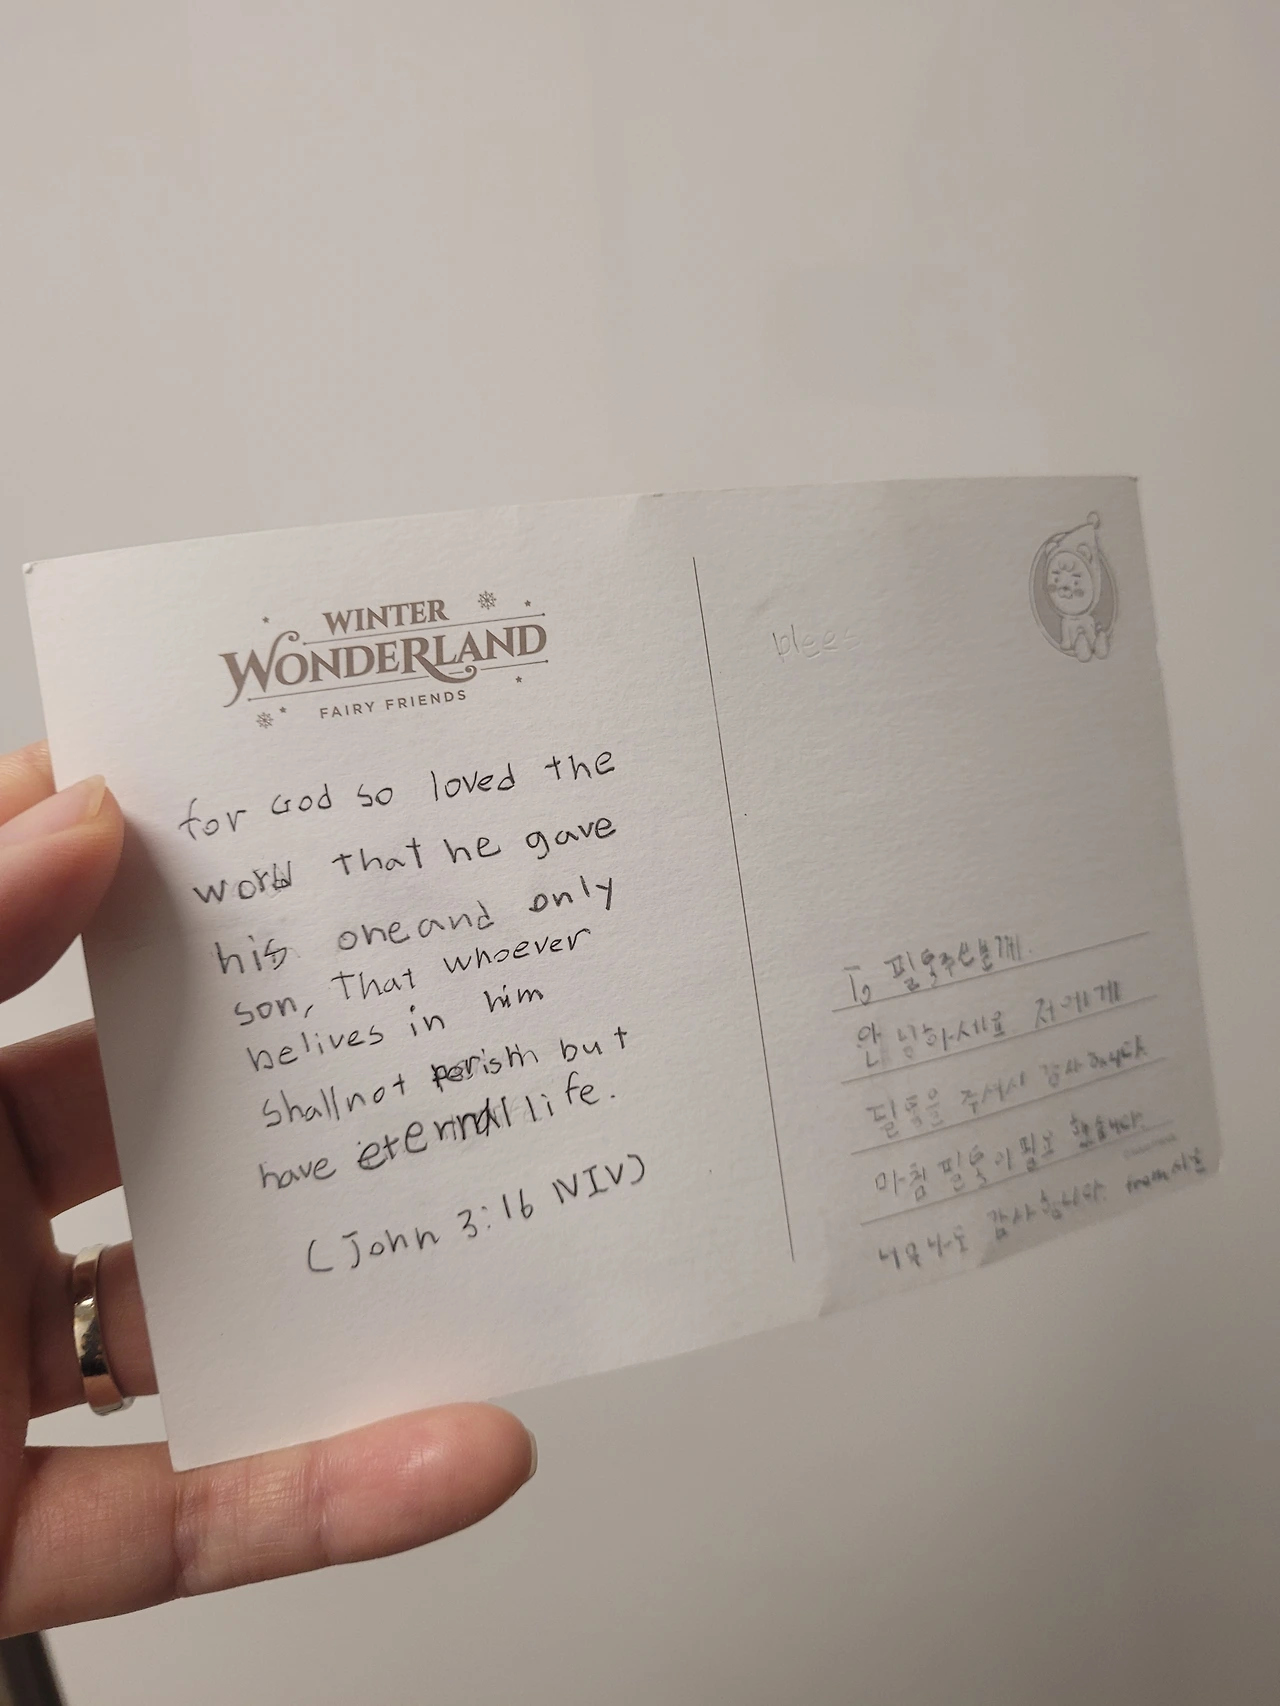 WINTER
WONDERLAND
FAIRY FRIENDS
for God so loved the
world that he gave
his one and only
son, that whoever
belives in him
shall not perish but
have eternal life.
(John 3:16 NIV)
blees
To 필통주신분께.
안녕하세요 저에게
필통을 주셔서 감사합니다
마침 필통이 필요 했습니다.
너무나도 감사합니다. from